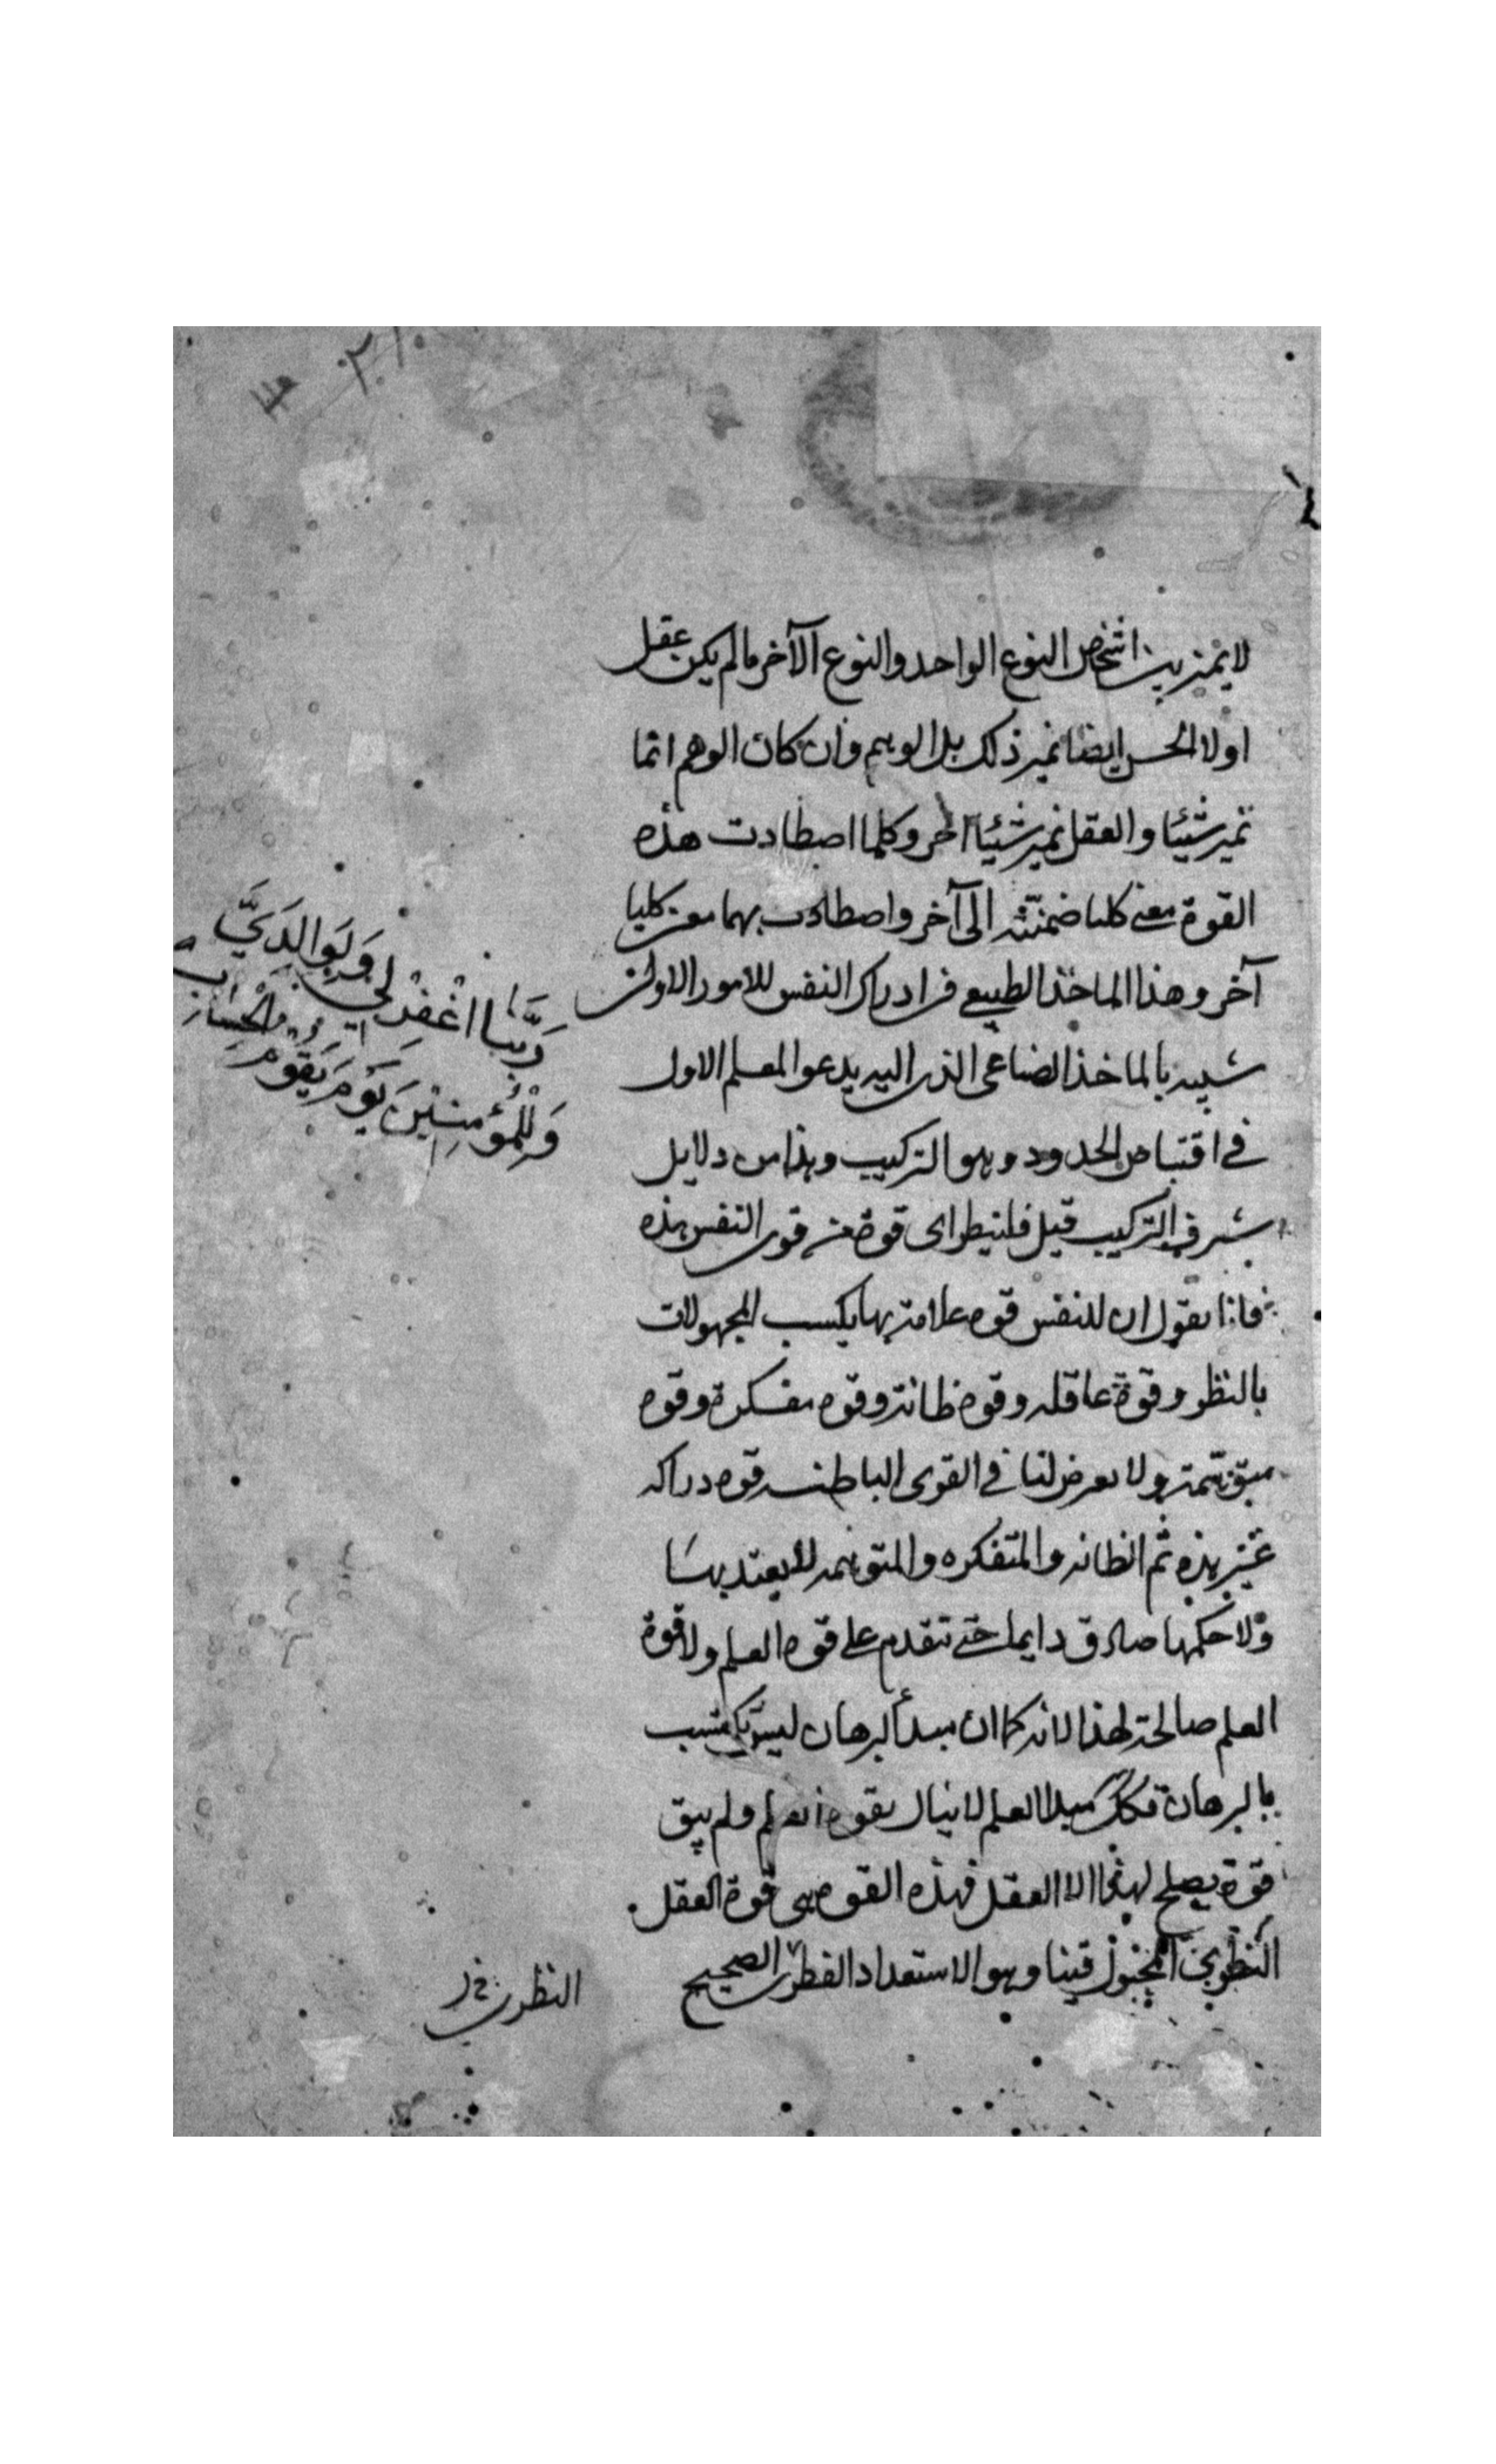 لا يميز بين اشخاص النوع الواحد والنوع الآخر ما لم يكن عقل
اولا الحس ايضا يميز ذلك بل الوهم وان كان الوهم انما
يميز شيئا والعقل يميز شيئا آخر وكلما اصطادت هذه
القوة معنى كليا ضمنته الى آخر واصطادت بهما معنى كليا
آخر وهذا الماخذ الطبيعي في ادراك النفس للامور الاولى
شبيه بالماخذ الصناعي الذي اليه يدعو المعلم الاول
في اقتناص الحدود وهو التركيب وهذا من دلايل
شرف التركيب قيل فلينظر اى قوة من قوى النفس هذه
فانا نقول ان للنفس قوه علامة بها يكسب المجهولات
بالنظر وقوة عاقله وقوه ظانة وقوه مفكرة وقوه
متوهمة ولا يعرض لنا في القوى الباطنه قوه دراكه
غير هذه ثم الظانه والمتفكره والمتوهمه لا يعتد بها
ولا حكمها صادق دايما حتى تتقدم على قوه العلم ولا قوة
العلم صالحة لهذا لانه كما ان مبدأ البرهان ليس يكتسب
بالبرهان فكذلك مبدا العلم لا ينال بقوه العلم ولم يبق
قوة يصلح لهذا الا العقل فهذه القوه هى قوة العقل
النظرى المجبول فينا وهو الاستعداد الفطرى الصحيح
ربنا اغفر لي ولوالدي
وللمؤمنين يوم يقوم الحساب
النظرى